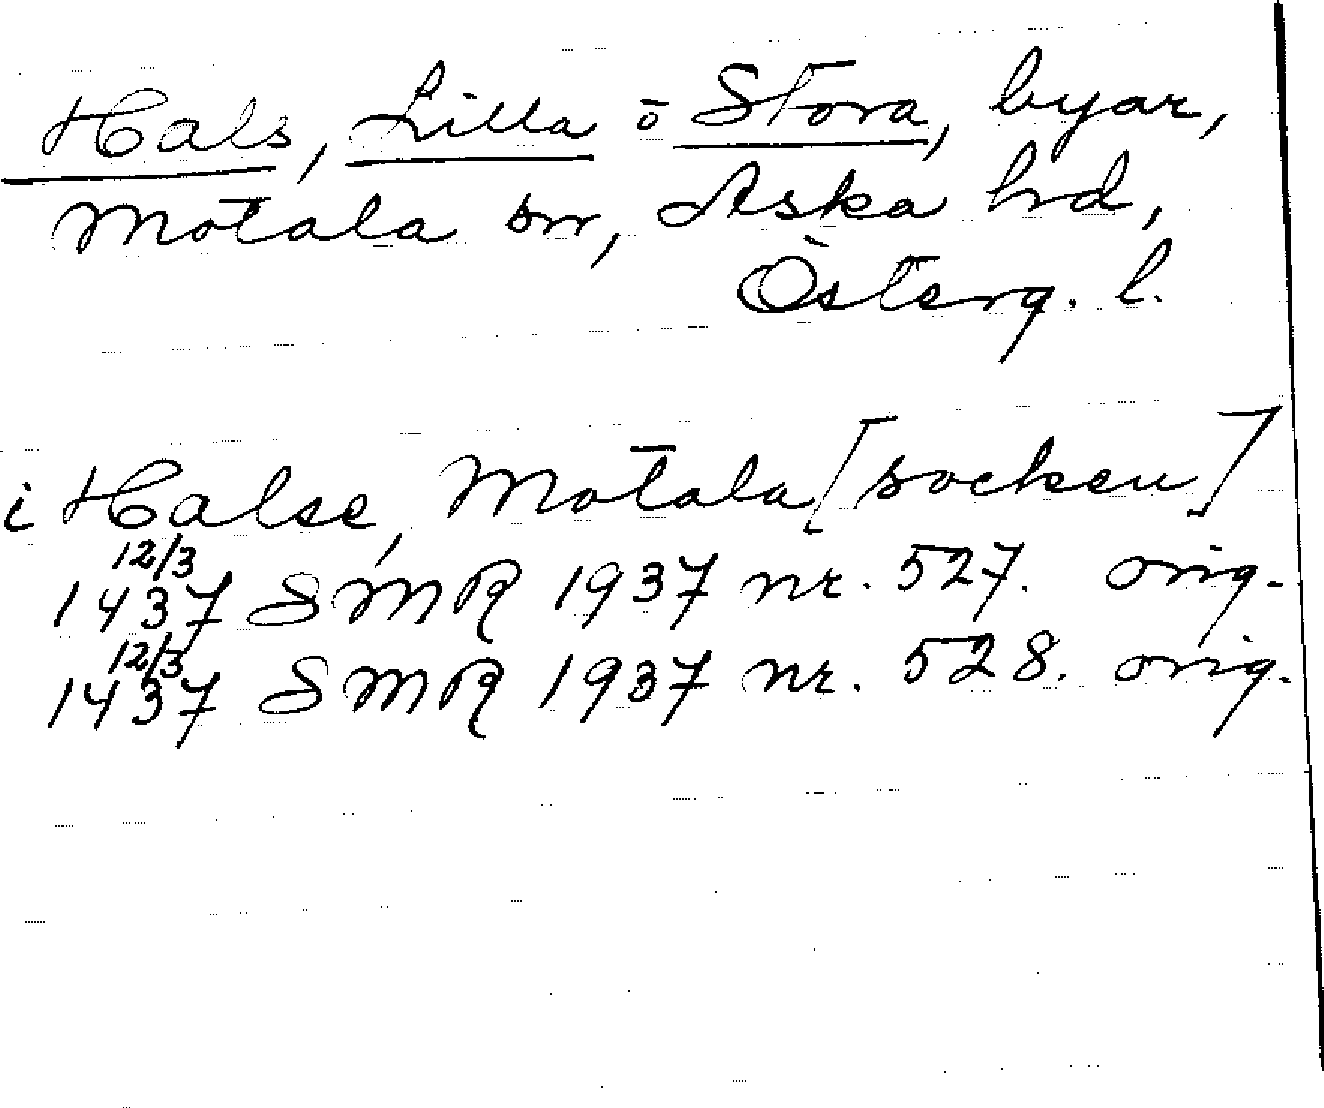 Hals, Lilla o Stora, byar,
Motala sn, Aska hd,
Österg. l.
i Halse, Motala [socken]
12/3
1437 SMR 1937 nr. 527. orig.
12/3
1437 SMR 1937 nr. 528. orig.